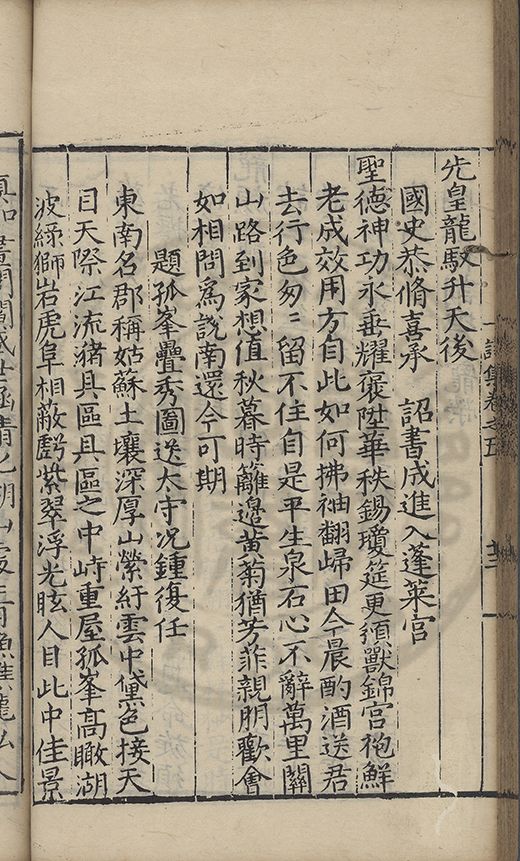 先皇龍馭升天後
國史恭脩喜承 詔書成進入蓬萊宮
聖德神功永垂耀褒陞華秩錫瓊筵更預獸錦宮袍鮮
老成效用方自此如何拂袖翻歸田今晨酌酒送君
去行色匆〻留不住自是平生泉石心不辭萬里關
山路到家想值秋暮時籬邉黄菊猶芳菲親朋歡會
如相問爲說南還今可期
題孤峯疊秀圖送太守况鍾復任
東南名郡稱姑蘇土壤深厚山縈紆雲中黛色接天
目天際江流豬具區具區之中峙重屋孤峯髙瞰湖
波綠獅岩虎阜相敵虧紫翠浮光眩人目此中佳景
詩集卷之五